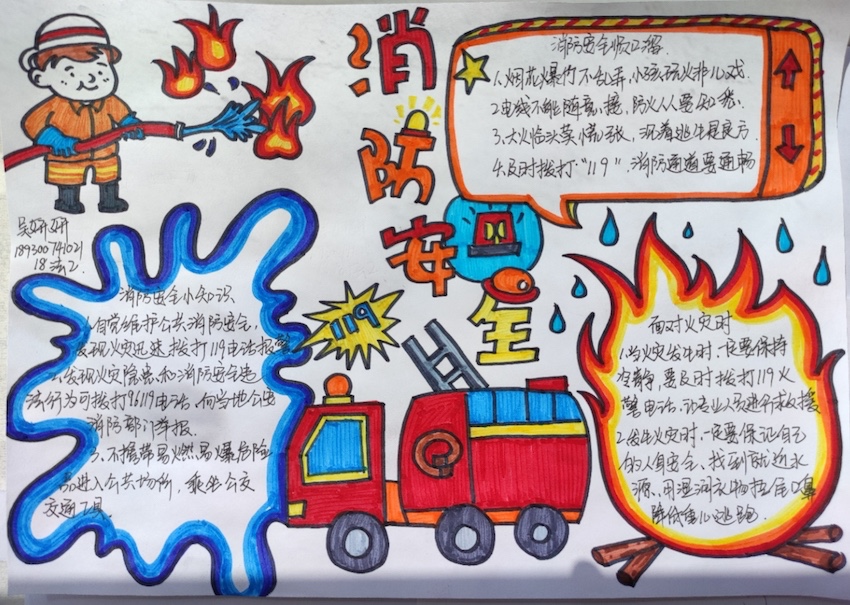 消防安全
消防安全顺口溜
1.烟花爆竹不乱弄,小孩玩火非儿戏
2.电线不能随意接,防火人人要知悉.
3.大火临头莫慌张,沉着逃生是良方.
4.及时拨打"119",消防通道要通畅
吴妍妍
189300741021
18法2
消防安全小知识
1.自觉维护公共消防安全,
发现火灾迅速拨打119电话报警
2.发现火灾隐患和消防安全违
法行为可拨打96119电话,向当地公安
消防部门举报.
3.不携带易燃易爆危险
品进入公共场所,乘坐公交
交通工具.
119
面对火灾时
1.当火灾发生时,一定要保持
冷静,要及时拨打119火
警电话,让专业人员进行救援
2.发生火灾时,一定要保证自己
的人身安全,找到就近水
源,用湿润衣物捂住口鼻
降低重心逃跑.